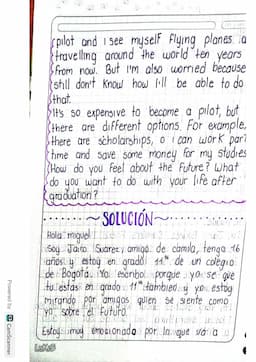 pilot and I see myself flying planes a
travelling around the world ten years
from now. But I'm also worried because
still don't know how I'll be able to do
that.
It's so expensive to become a pilot, but
there are different options. For example,
there are scholarships, o i can work par
time and save some money for my studies
How do you feel about the future? What
do you want to do with your life after
graduation?
SOLUCIÓN
Hola miguel
Soy Jairo Suarez, amigo de camila, tengo 16
años y estoy en grado 11° de un colegio
de Bogotá. Yo escribo porque yo se que
tu estas en grado 11° tambien y yo estoy
mirando por amigos quien se siente como
yo sobre el futuro.
Estoy muy emocionado por lo que va a
Powered by CamScanner